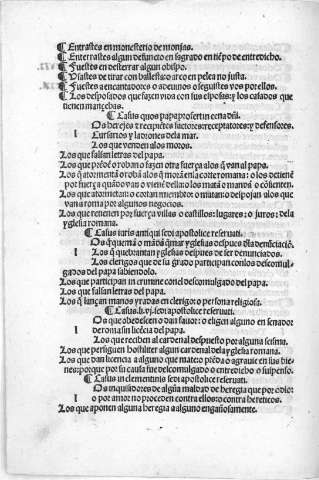 ¶ Entrastes en monesterio de monjas.
¶ Enterrastes algun defuncto en sagrado en tiẽpo de entredicho.
¶ Fuestes en desterrar algun obispo.
¶ Usastes de tirar con ballesta o arco en pelea no justa.
¶ Fuestes a encantadores o adeuinos o seguistes vos por ellos.
¶ Los desposados que fazen vida con sus esposas: y los casados que
tienen mancebas.
¶ Casus quos papa por se rt in cena dñi.
Os herejes: receptores: fautores: receptatores: y defensores.
Cursarios y ladrones dela mar.
Los que venden alos moros.
Los que falsan letras del papa.
Los que prẽdẽ o roban o fazen otra fuerça alos q̃ van al papa.
Los q̃ atormentã o robã alos q̃ morã en la corte romana: o los detienẽ
por fuerça quãdo van o vienẽ de ella: o los matã o mancã o cõsienten.
Los que atormentan: o cortan miembros o matan: o despojan alos que
van a roma por algunos negocios.
Los que retienen por fuerça villas o castillos: lugares: o juros: dela
yglesia romana.
¶ Casus iuris antiqui sedi apostolice reseruati.
Os q̃ quemã o mãdã q̃mar yglesias despues dla denũciaciõ.
Los q̃ quebrantan yglesias despues de ser denunciados.
Los clerigos que de su grado participan conlos descomul
gados del papa sabiendolo.
Los que participan in crimine conel descomulgado del papa.
Los que falsan letras del papa.
Los q̃ lançan manos yradas en clerigo o persona religiosa.
¶ Casus.b.vj.sedi apostolice reseruati.
Os que obedescen o dan fauor: o eligen alguno en senador
de roma sin licẽcia del papa.
Los que reciben al cardenal despuesto por alguna scisma.
Los que persiguen hostilmẽte algun cardenal dela yglesia romana.
Los que dan licencia a alguno que mate o prẽda o agrauie en sus bie
nes: porque por su causa fue descomulgado o entredicho o suspenso.
¶ Casus in clementinis sedi apostolice reseruati.
Os inquisidores de algũa maldad de heregia que por odio
o por amor no proceden contra ellos: o contra hereticos.
Los que aponen alguna heregia a alguno engañosamente.